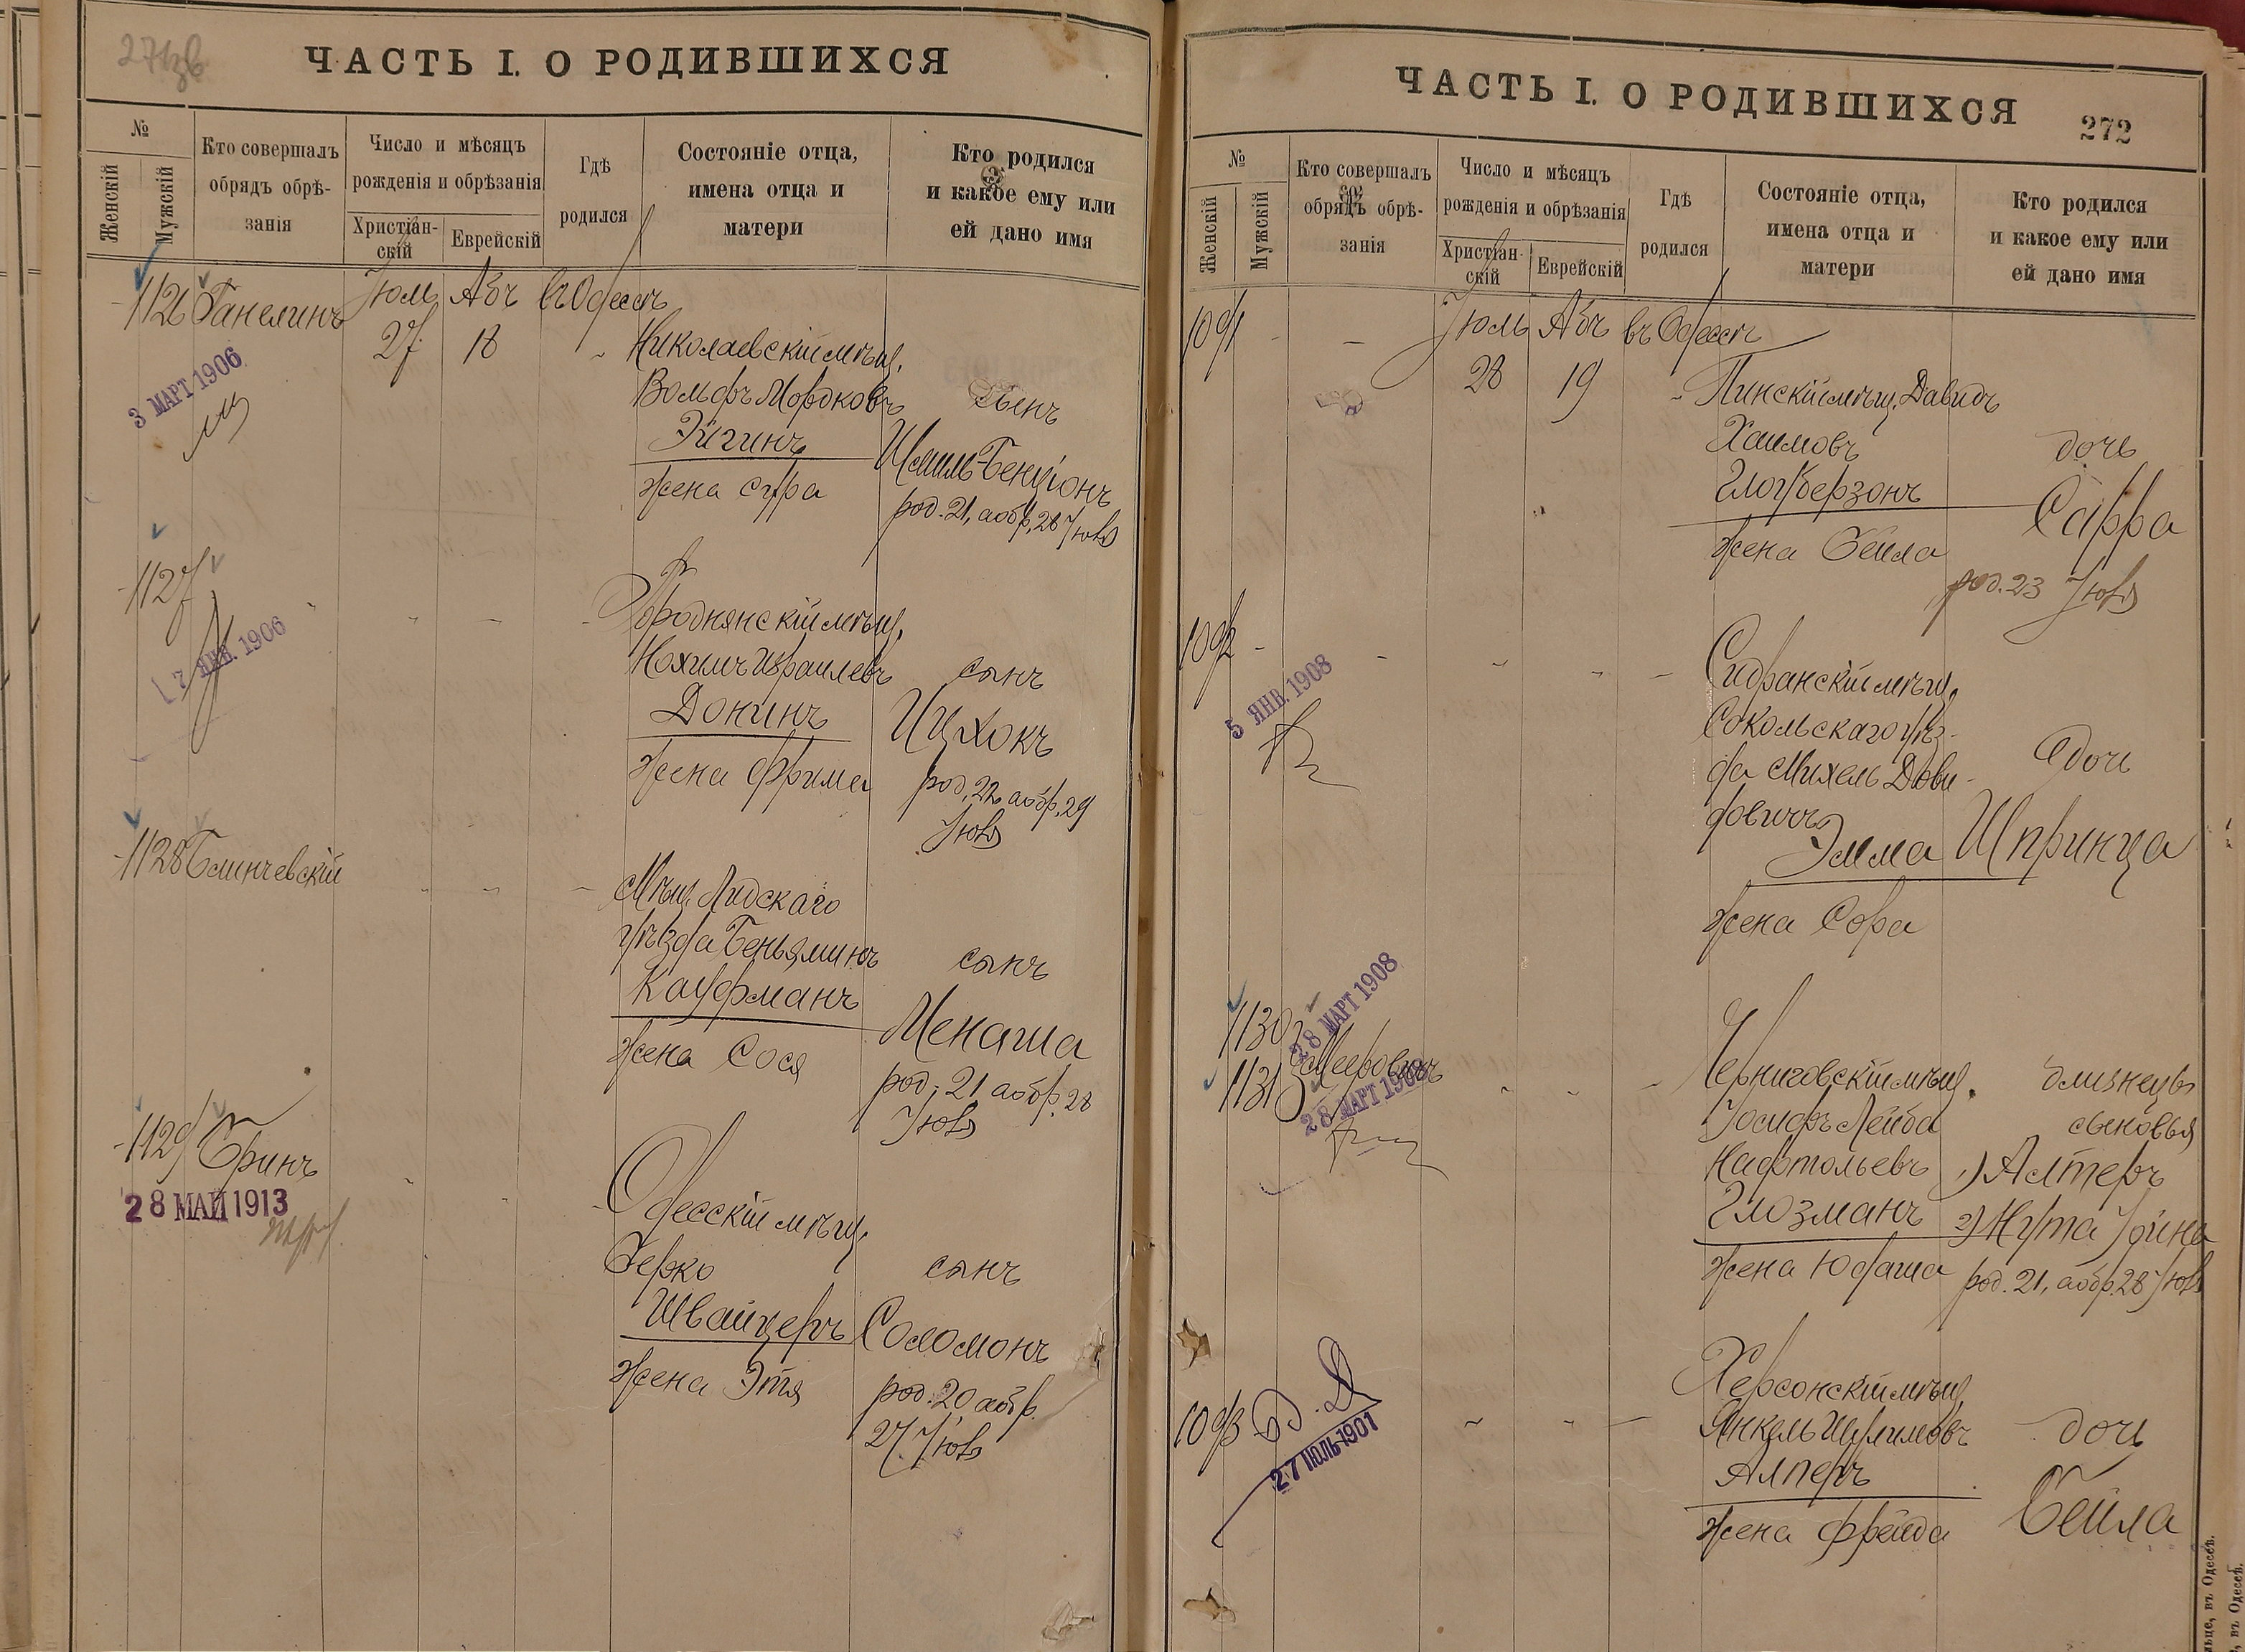 271об
ЧАСТЬ I. О РОДИВШИХСЯ
№
Женскій
Мужскій
Кто совершалъ
обрядъ обрѣ-
занія
Число и мѣсяцъ
рожденія и обрѣзанія
Христіан-
скій
Еврейскій
Гдѣ
родился
Состояніе отца,
имена отца и
матери
Кто родился
и какое ему или
ей дано имя
1126 Ганелинъ Іюль Абъ въ Одессѣ
27 18 Николаевскій мѣщ.
Вольфъ Мордковъ сынъ
Эйгинъ
Шмиль-Бенціонъ
жена Сура
род. 21, а обр. 28 Іюля
3 МАРТ 1906
1127
Городнянскій мѣщ.
Нохимъ Израилевъ сынъ
Донинъ Ицхокъ
жена Фрима род. 22 а обр. 29
Іюля
17 ЯНВ. 1906
1128 Блинчевскій
Мѣщ. Лидскаго
уѣзда Беньяминъ сынъ
Кауфманъ
Менаша
жена Сося
род. 21 а обр. 28
Іюля
1129 Бринъ
28 МАЙ 1913
Одесскій мѣщ.
Берко сынъ
Швайцеръ Соломонъ
жена Этя род. 20 а обр.
27 Іюля
ЧАСТЬ I. О РОДИВШИХСЯ
272
№
Женскій
Мужскій
Кто совершалъ
обрядъ обрѣ-
занія
Число и мѣсяцъ
рожденія и обрѣзанія
Христіан-
скій
Еврейскій
Гдѣ
родился
Состояніе отца,
имена отца и
матери
Кто родился
и какое ему или
ей дано имя
1091 - - Іюль Абъ въ Одессѣ
28 19 Пинскій мѣщ. Давидъ
Хаимовъ дочь
Глоуберзонъ
Сарра
жена Бейла
род. 23 Іюля
1092 -
5 ЯНВ. 1908
Сидранскій мѣщ.
Сокольскаго уѣз-
да Михель Дови- дочь
довичъ
Эмма Шпринца
жена Сора
28 МАРТ 1908
1130
1131 Мееровичъ
28 МАРТ 1908
Черниговскій мѣщ. близнецы
Іосифъ-Лейба сыновья
Нафтольевъ 1) Алтеръ
Глозманъ 2) Нута Іойна
жена Юдаша род. 21, а обр. 28 Іюля
1093
27 ІЮЛЬ 1901
Херсонскій мѣщ.
Янкель Шулимовъ дочь
Алперъ
Бейла
жена Фрейда
въ Одессѣ.
въ Одессѣ.